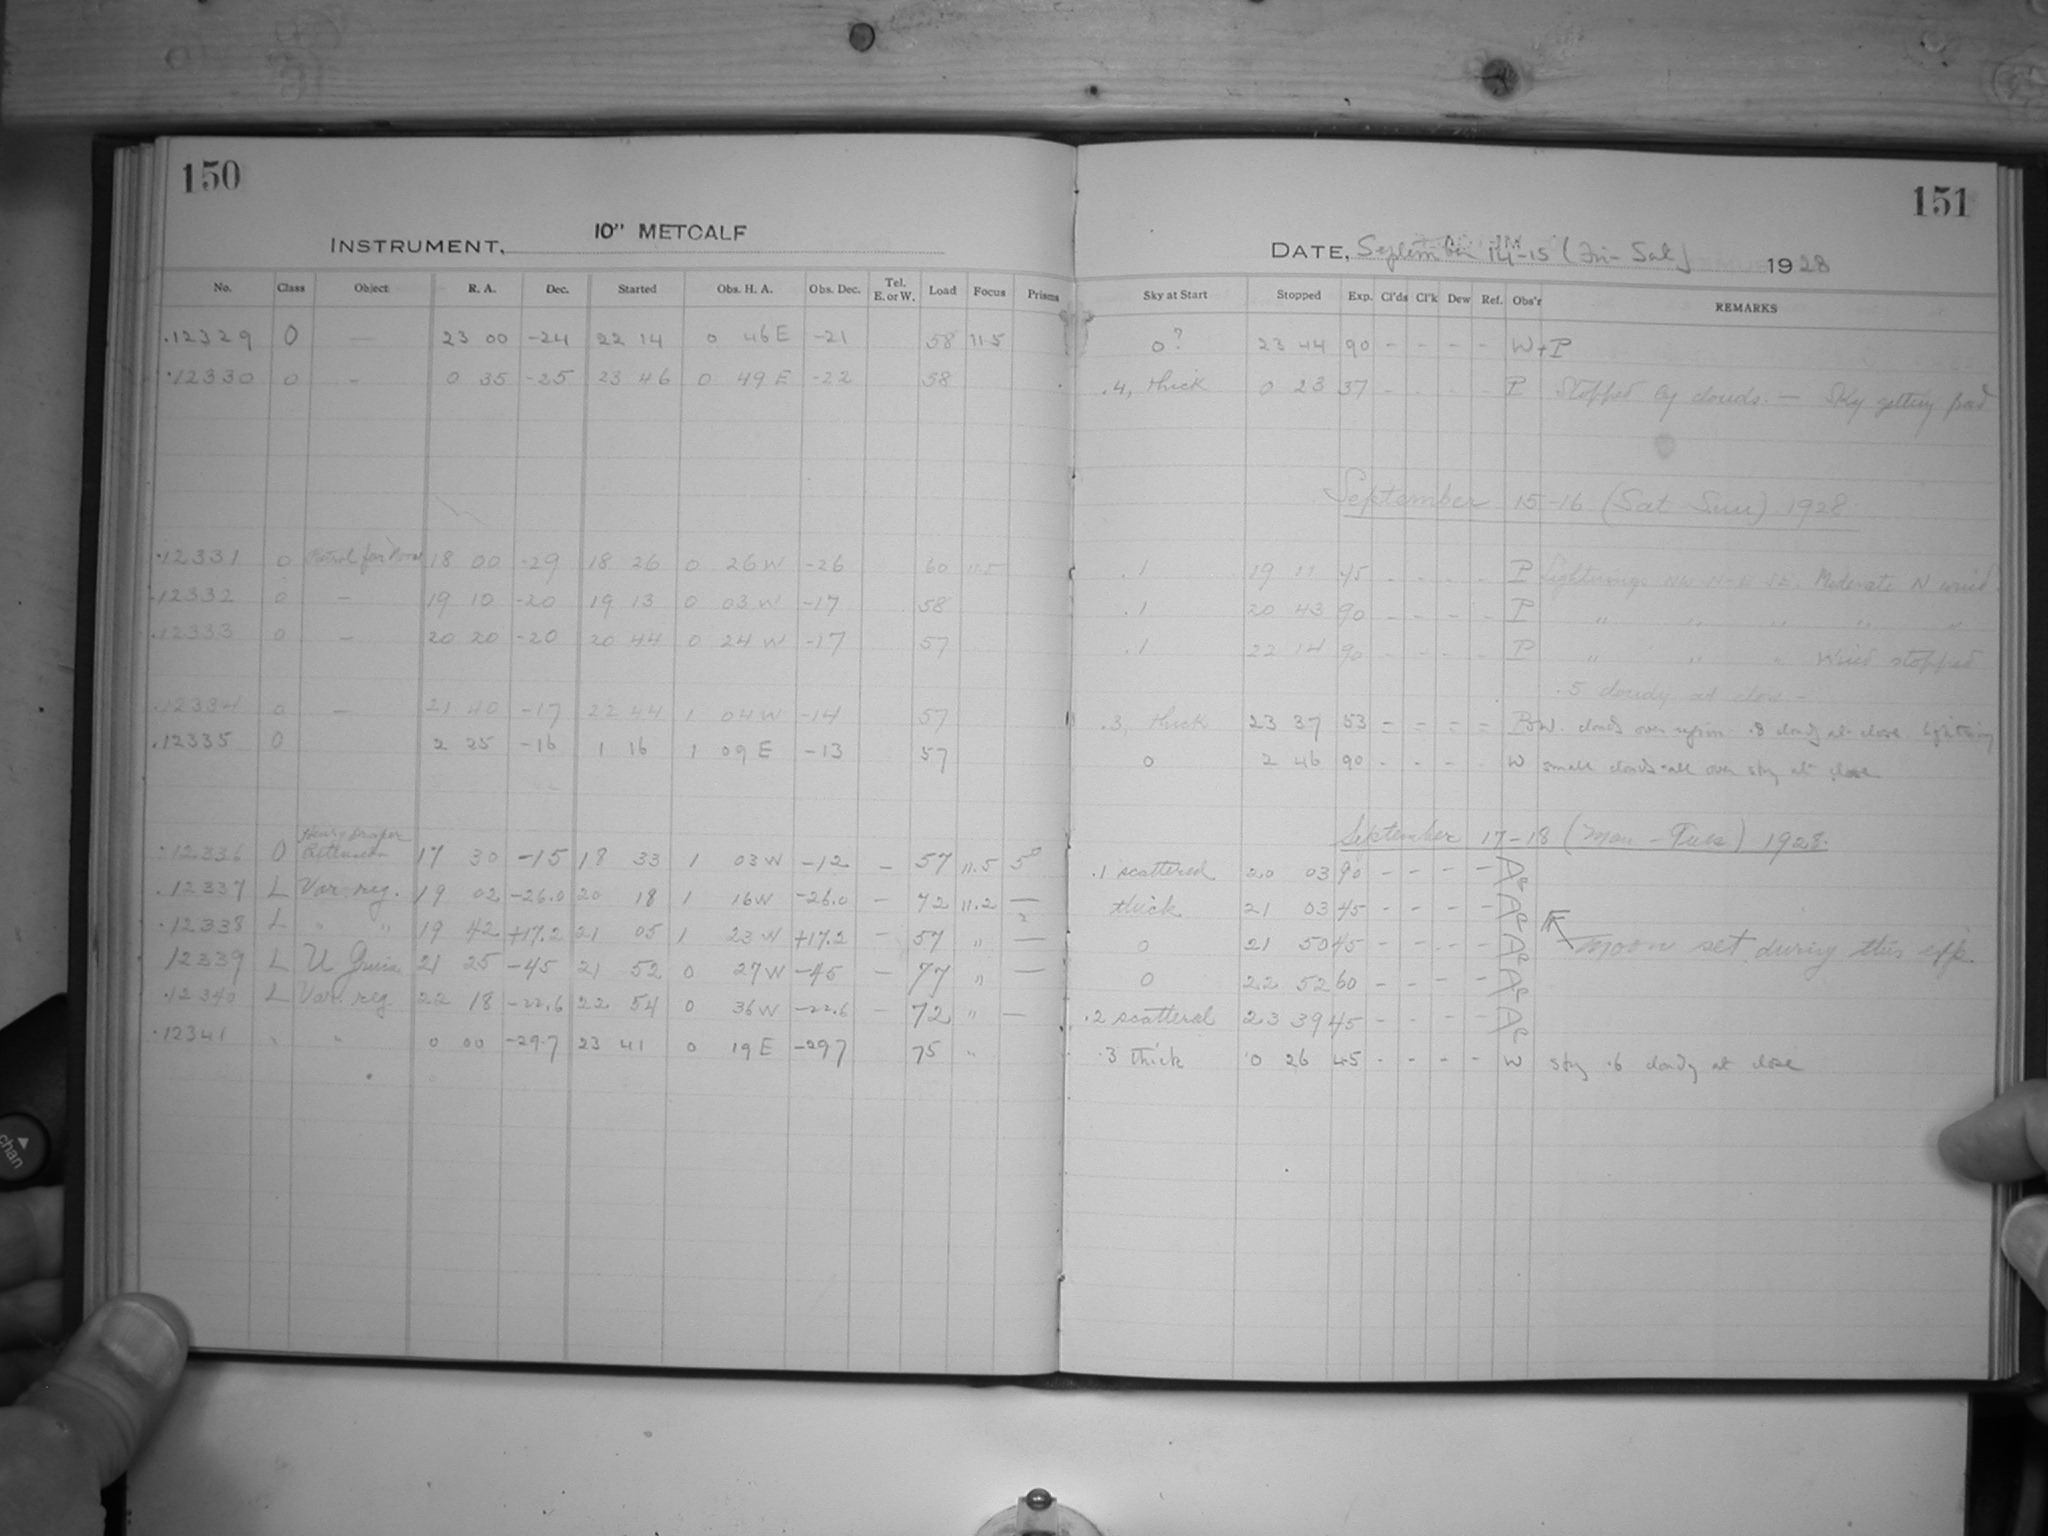 150
INSTRUMENT, 10" METCALF
No. Class Object R. A. Dec. Started Obs. H. A. Obs. Dec. Tel. E. or W. Load Focus Prisms
.12329 O — 23 00 -24 22 14 0 46 E -21 58 11.5
.12330 O - 0 35 -25 23 46 0 49 E -22 58
.12331 O Patrol for Nova 18 00 -29 18 26 0 26 W -26 60 11.5
.12332 O — 19 10 -20 19 13 0 03 W -17 58
.12333 O — 20 20 -20 20 44 0 24 W -17 57
.12334 O — 21 40 -17 22 44 1 04 W -14 57
.12335 O 2 25 -16 1 16 1 09 E -13 57
Henry Draper
.12336 O Extension 17 30 -15 18 33 1 03 W -12 — 57 11.5 5°
.12337 L Var. reg. 19 02 -26.0 20 18 1 16 W -26.0 — 72 11.2 —
.12338 L " " 19 42 +17.2 21 05 1 23 W +17.2 — 57 " —
12339 L U Gruis 21 25 -45 21 52 0 27 W -45 — 77 " —
.12340 L Var. reg. 22 18 -22.6 22 54 0 36 W -22.6 — 72 " —
.12341 " " 0 00 -29.7 23 41 0 19 E -29.7 75 "
151
DATE, September 14-15 (Fri-Sat) 1928
Sky at Start Stopped Exp. Cl'ds Cl'k Dew Ref. Obs'r REMARKS
0? 23 44 90 - - - - W+P
.4, thick 0 23 37 - - - - P Stopped by clouds. — Sky getting bad
September 15-16 (Sat Sun) 1928
.1 19 11 45 - - - - P Lightnings NW N-E SE. Moderate N wind.
.1 20 43 90 - - - - P " " " " "
.1 22 14 90 - - - - P " " " Wind stopped
.5 cloudy at close -
.3, thick 23 37 53 = = = = P+W. clouds over region .8 cloudy at close. lightning
0 2 46 90 - - - - W small clouds all over sky at close
September 17-18 (Mon-Tues) 1928.
.1 scattered 20 03 90 - - - -
thick 21 03 45 - - - -
0 21 50 45 - - - - Moon set during this exp.
0 22 52 60 - - - -
.2 scattered 23 39 45 - - - -
.3 thick 0 26 45 - - - - W sky .6 cloudy at close